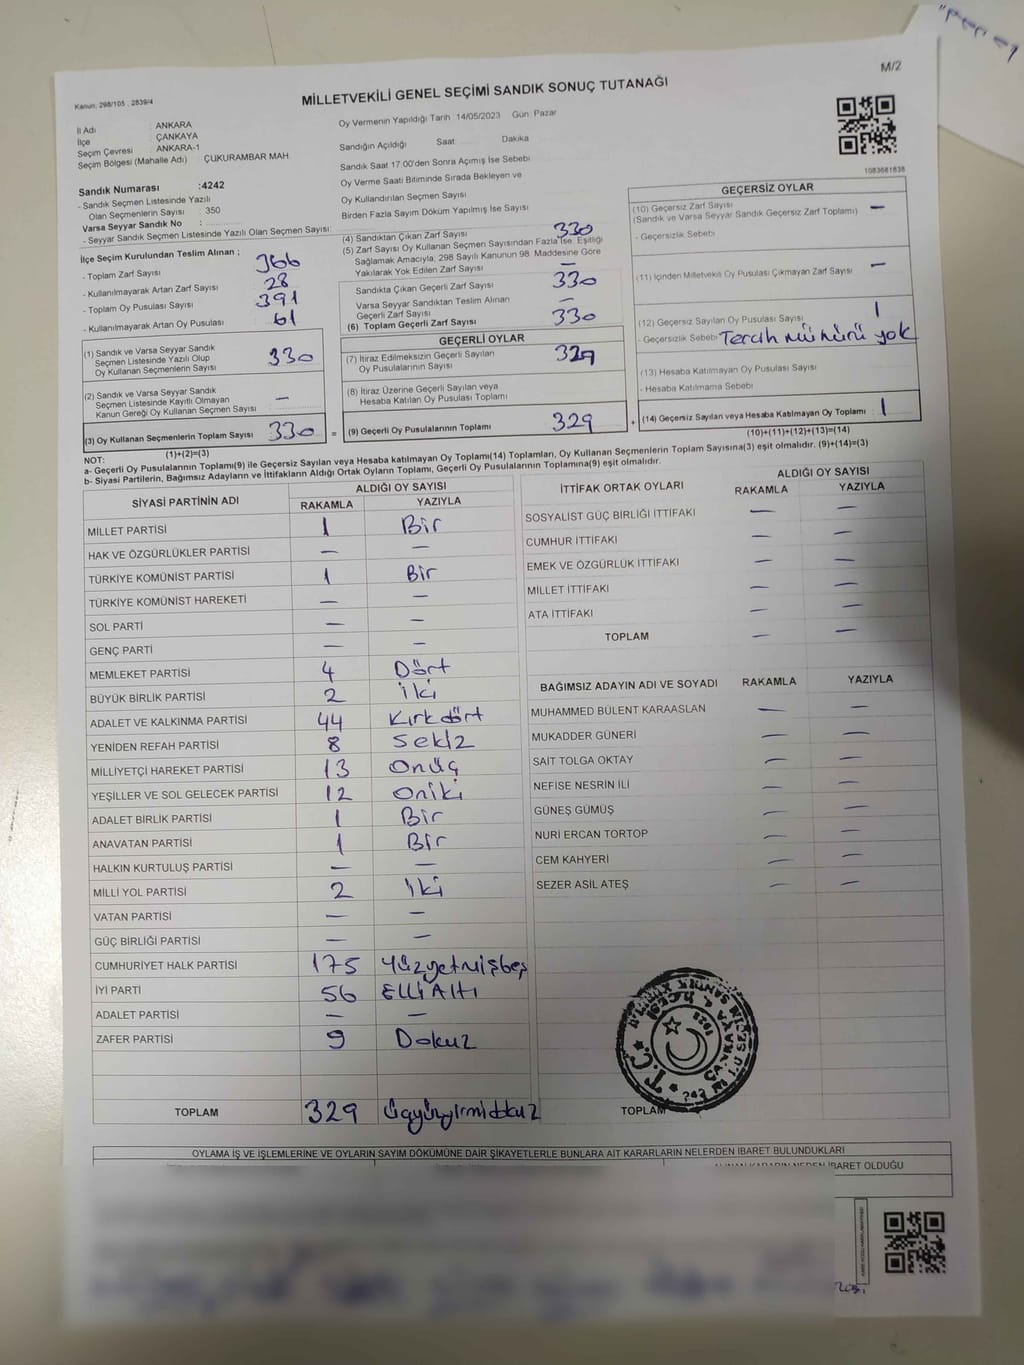 M/2
Kanun; 298/105 , 2839/4
MİLLETVEKİLİ GENEL SEÇİMİ SANDIK SONUÇ TUTANAĞI
İl Adı : ANKARA
İlçe : ÇANKAYA
Seçim Çevresi : ANKARA-1
Seçim Bölgesi (Mahalle Adı) : ÇUKURAMBAR MAH.
Oy Vermenin Yapıldığı Tarih 14/05/2023 Gün: Pazar
Sandığın Açıldığı Saat Dakika
Sandık Saat 17:00'den Sonra Açımış İse Sebebi
Oy Verme Saati Bitiminde Sırada Bekleyen ve
Oy Kullandırılan Seçmen Sayısı
Birden Fazla Sayım Döküm Yapılmış İse Sayısı
1083681638
Sandık Numarası :4242
- Sandık Seçmen Listesinde Yazılı
Olan Seçmenlerin Sayısı : 350
Varsa Seyyar Sandık No :
- Seyyar Sandık Seçmen Listesinde Yazılı Olan Seçmen Sayısı:
İlçe Seçim Kurulundan Teslim Alınan ;
- Toplam Zarf Sayısı 366
- Kullanılmayarak Artan Zarf Sayısı 28
- Toplam Oy Pusulası Sayısı 391
- Kullanılmayarak Artan Oy Pusulası 61
(1) Sandık ve Varsa Seyyar Sandık
Seçmen Listesinde Yazılı Olup
Oy Kullanan Seçmenlerin Sayısı 330
(2) Sandık ve Varsa Seyyar Sandık
Seçmen Listesinde Kayıtlı Olmayan
Kanun Gereği Oy Kullanan Seçmen Sayısı —
(3) Oy Kullanan Seçmenlerin Toplam Sayısı 330
(1)+(2)=(3)
(4) Sandıktan Çıkan Zarf Sayısı 330
(5) Zarf Sayısı Oy Kullanan Seçmen Sayısından Fazla İse, Eşitliği
Sağlamak Amacıyla, 298 Sayılı Kanunun 98. Maddesine Göre
Yakılarak Yok Edilen Zarf Sayısı —
Sandıkta Çıkan Geçerli Zarf Sayısı 330
Varsa Seyyar Sandıktan Teslim Alınan
Geçerli Zarf Sayısı —
(6) Toplam Geçerli Zarf Sayısı 330
GEÇERLİ OYLAR
(7) İtiraz Edilmeksizin Geçerli Sayılan
Oy Pusulalarının Sayısı 329
(8) İtiraz Üzerine Geçerli Sayılan veya
Hesaba Katılan Oy Pusulası Toplamı
= (9) Geçerli Oy Pusulalarının Toplamı 329
GEÇERSİZ OYLAR
(10) Geçersiz Zarf Sayısı —
(Sandık ve Varsa Seyyar Sandık Geçersiz Zarf Toplamı)
- Geçersizlik Sebebi
(11) İçinden Milletvekili Oy Pusulası Çıkmayan Zarf Sayısı —
(12) Geçersiz Sayılan Oy Pusulası Sayısı 1
- Geçersizlik Sebebi Tercih mührü yok
(13) Hesaba Katılmayan Oy Pusulası Sayısı
- Hesaba Katılmama Sebebi
+ (14) Geçersiz Sayılan veya Hesaba Katılmayan Oy Toplamı 1
(10)+(11)+(12)+(13)=(14)
NOT:
a- Geçerli Oy Pusulalarının Toplamı(9) ile Geçersiz Sayılan veya Hesaba katılmayan Oy Toplamı(14) Toplamları, Oy Kullanan Seçmenlerin Toplam Sayısına(3) eşit olmalıdır. (9)+(14)=(3)
b- Siyasi Partilerin, Bağımsız Adayların ve İttifakların Aldığı Ortak Oyların Toplamı, Geçerli Oy Pusulalarının Toplamına(9) eşit olmalıdır.
SİYASİ PARTİNİN ADI ALDIĞI OY SAYISI
RAKAMLA YAZIYLA
MİLLET PARTİSİ 1 Bir
HAK VE ÖZGÜRLÜKLER PARTİSİ — —
TÜRKİYE KOMÜNİST PARTİSİ 1 Bir
TÜRKİYE KOMÜNİST HAREKETİ — —
SOL PARTİ — —
GENÇ PARTİ — —
MEMLEKET PARTİSİ 4 Dört
BÜYÜK BİRLİK PARTİSİ 2 iki
ADALET VE KALKINMA PARTİSİ 44 Kırkdört
YENİDEN REFAH PARTİSİ 8 Sekiz
MİLLİYETÇİ HAREKET PARTİSİ 13 Onüç
YEŞİLLER VE SOL GELECEK PARTİSİ 12 Oniki
ADALET BİRLİK PARTİSİ 1 Bir
ANAVATAN PARTİSİ 1 Bir
HALKIN KURTULUŞ PARTİSİ — —
MİLLİ YOL PARTİSİ 2 iki
VATAN PARTİSİ — —
GÜÇ BİRLİĞİ PARTİSİ — —
CUMHURİYET HALK PARTİSİ 175 Yüzyetmişbeş
İYİ PARTİ 56 Elli Altı
ADALET PARTİSİ — —
ZAFER PARTİSİ 9 Dokuz
TOPLAM 329 üçyüzyirmidokuz
İTTİFAK ORTAK OYLARI ALDIĞI OY SAYISI
RAKAMLA YAZIYLA
SOSYALİST GÜÇ BİRLİĞİ İTTİFAKI — —
CUMHUR İTTİFAKI — —
EMEK VE ÖZGÜRLÜK İTTİFAKI — —
MİLLET İTTİFAKI — —
ATA İTTİFAKI — —
TOPLAM — —
BAĞIMSIZ ADAYIN ADI VE SOYADI RAKAMLA YAZIYLA
MUHAMMED BÜLENT KARAASLAN — —
MUKADDER GÜNERİ — —
SAİT TOLGA OKTAY — —
NEFİSE NESRİN İLİ — —
GÜNEŞ GÜMÜŞ — —
NURİ ERCAN TORTOP — —
CEM KAHYERİ — —
SEZER ASİL ATEŞ — —
TOPLAM
T.C.
OYLAMA İŞ VE İŞLEMLERİNE VE OYLARIN SAYIM DÖKÜMÜNE DAİR ŞİKAYETLERLE BUNLARA AİT KARARLARIN NELERDEN İBARET BULUNDUKLARI
İBARET OLDUĞU